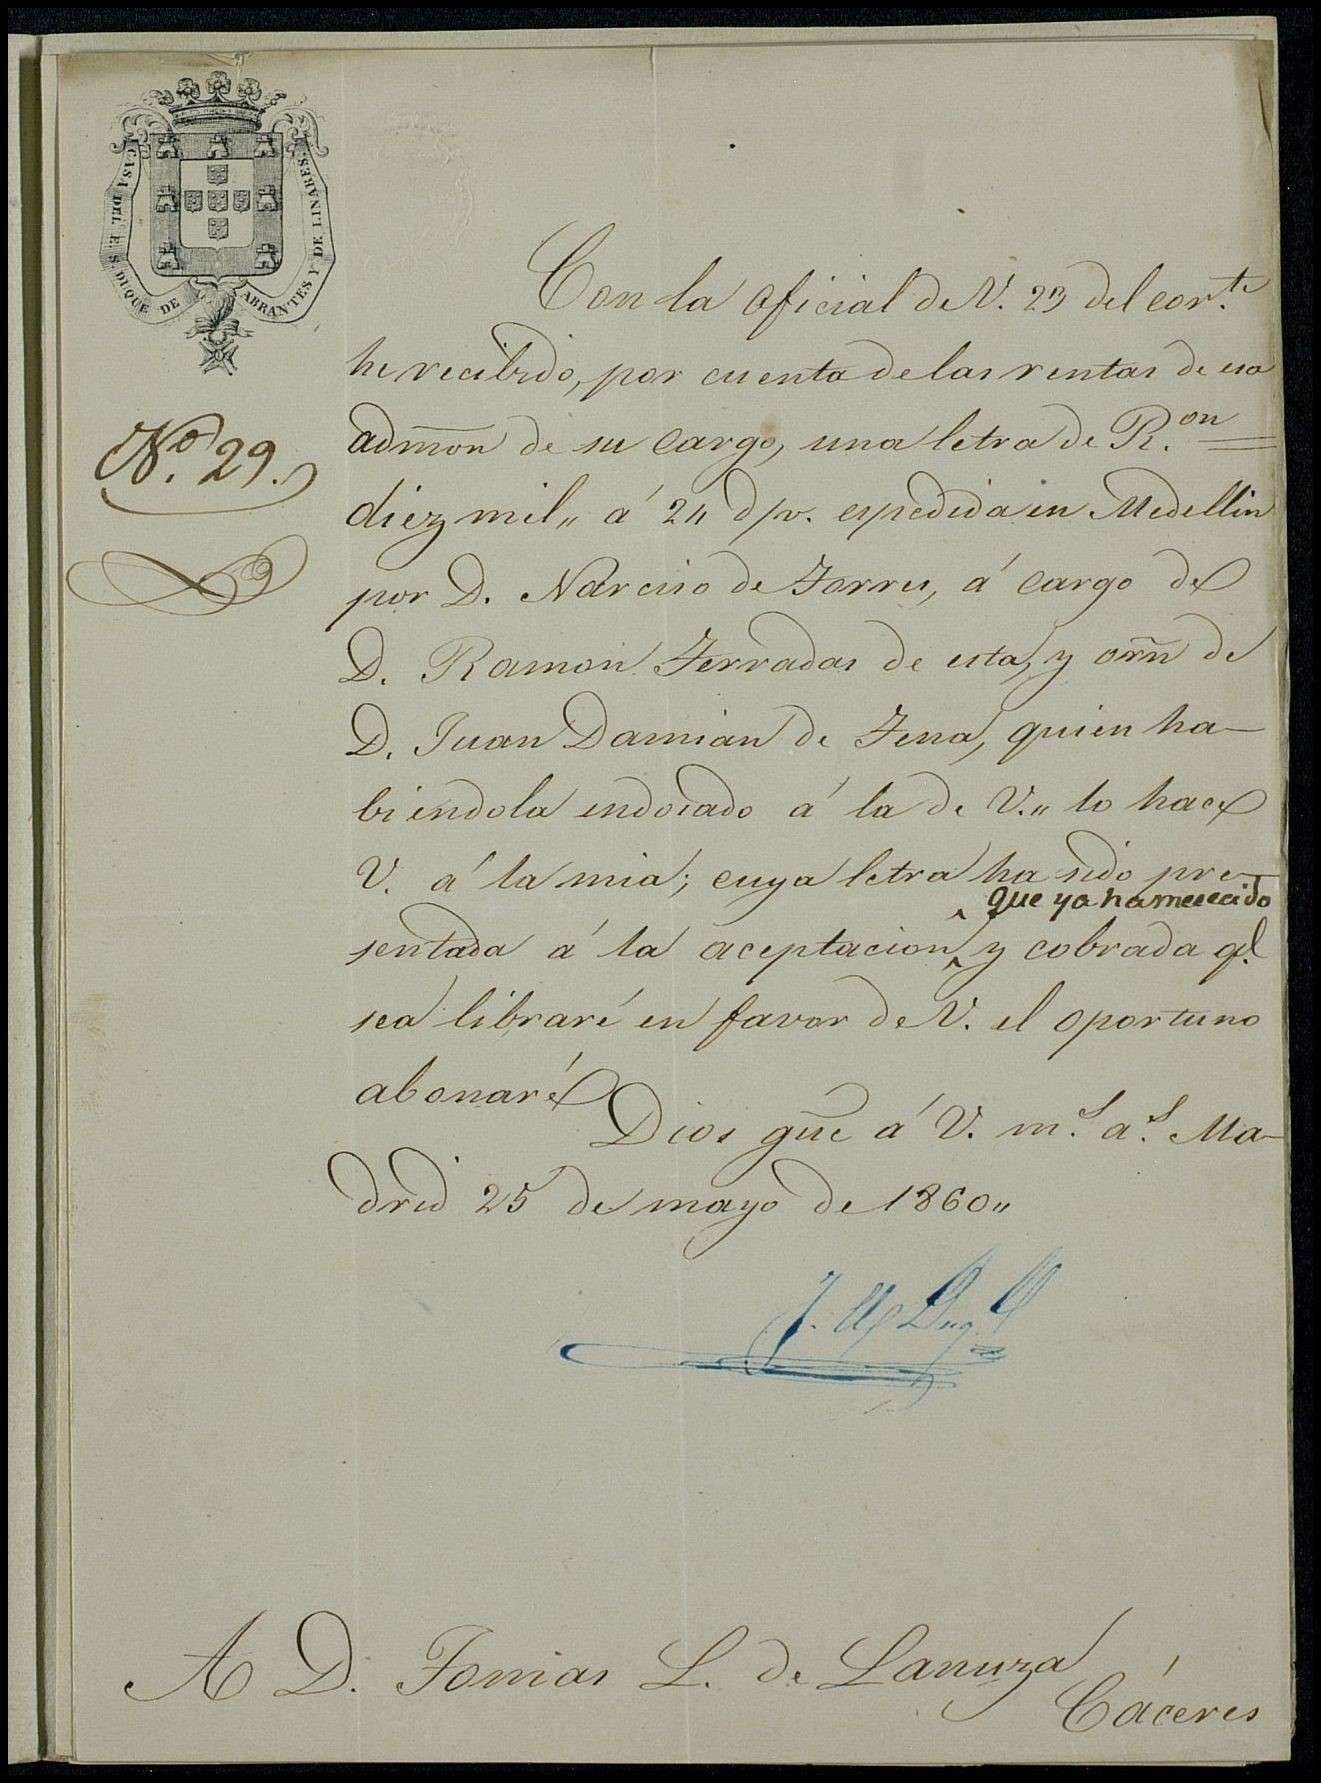 CASA DEL E. S. DUQUE DE ABRANTES Y DE LINARES.
Nº. 29.
Con la oficial de V. 23 del cor.te
he recibido, por cuenta de las rentas de esa
admon de su cargo, una letra de R.on
diez mil,, á 24 d/v. espedida en Medellin
por D. Narciso de Torres, á cargo de
D. Ramon Terradas de esta, y orñ de
D. Juan Damian de Tena, quien ha-
biendola endosado á la de V.,, lo hace
V. á la mia; cuya letra ha sido pre-
que ya ha merecido
sentada á la aceptacion, y cobrada q.l
sea libraré en favor de V. el oportuno
abonaré
Dios gue á V. m.s a.s Ma-
drid 25 de mayo de 1860,,
A D. Tomas L. de Lanuza
Cáceres